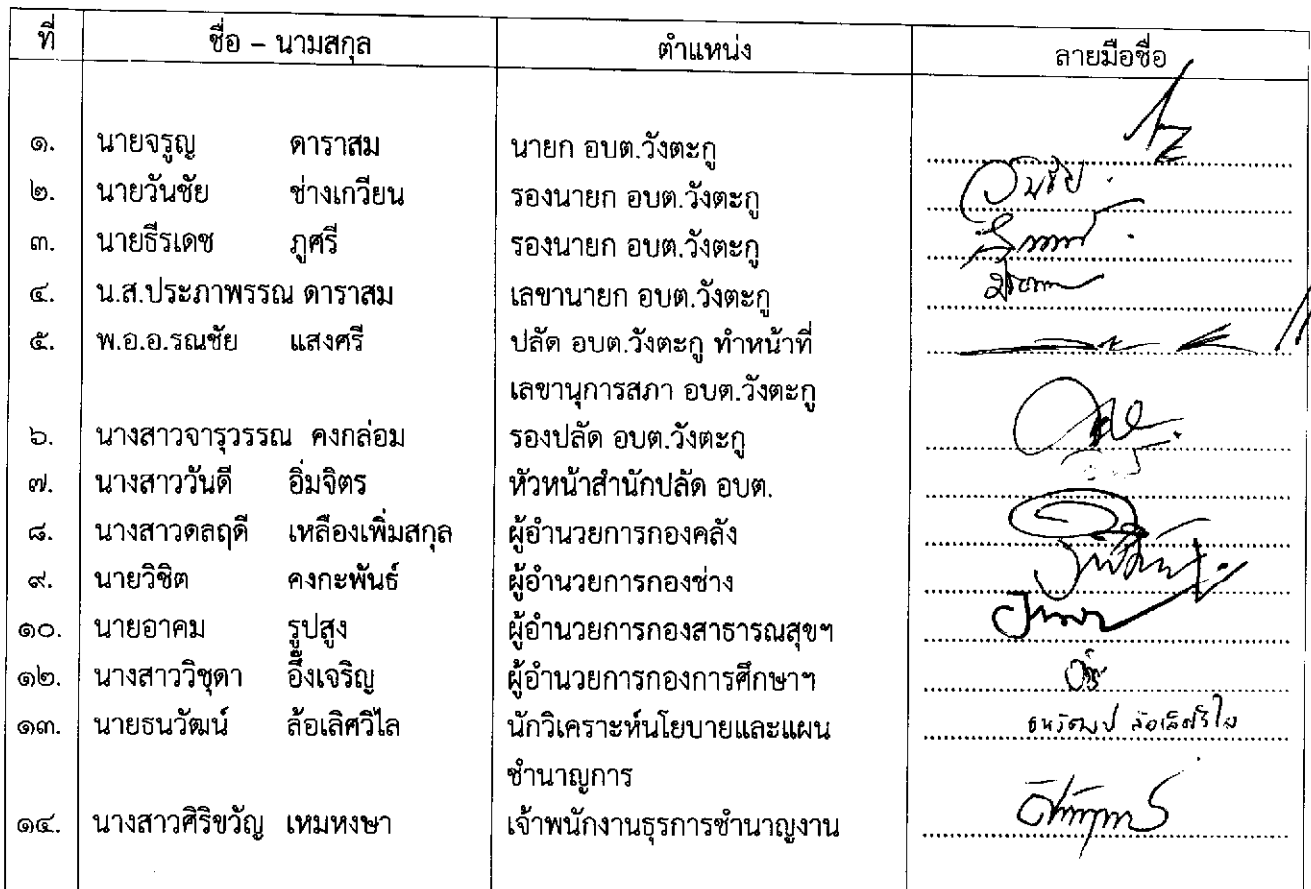 ที่ ชื่อ – นามสกุล ตำแหน่ง ลายมือชื่อ
๑. นายจรูญ ดาราสม นายก อบต.วังตะกู
๒. นายวันชัย ช่างเกวียน รองนายก อบต.วังตะกู วันชัย
๓. นายธีรเดช ภูศรี รองนายก อบต.วังตะกู
๔. น.ส.ประภาพรรณ ดาราสม เลขานายก อบต.วังตะกู
๕. พ.อ.อ.รณชัย แสงศรี ปลัด อบต.วังตะกู ทำหน้าที่
เลขานุการสภา อบต.วังตะกู
๖. นางสาวจารุวรรณ คงกล่อม รองปลัด อบต.วังตะกู
๗. นางสาววันดี อิ่มจิตร หัวหน้าสำนักปลัด อบต.
๘. นางสาวดลฤดี เหลืองเพิ่มสกุล ผู้อำนวยการกองคลัง
๙. นายวิชิต คงกะพันธ์ ผู้อำนวยการกองช่าง
๑๐. นายอาคม รูปสูง ผู้อำนวยการกองสาธารณสุขฯ
๑๒. นางสาววิชุดา อึ๊งเจริญ ผู้อำนวยการกองการศึกษาฯ
๑๓. นายธนวัฒน์ ล้อเลิศวิไล นักวิเคราะห์นโยบายและแผน ธนวัฒน์ ล้อเลิศวิไล
ชำนาญการ
๑๔. นางสาวศิริขวัญ เหมหงษา เจ้าพนักงานธุรการชำนาญงาน